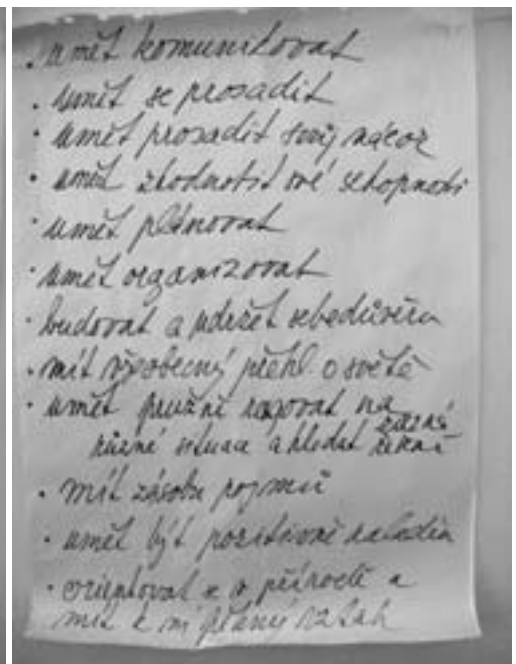 · umět komunikovat
· umět se prosadit
· umět prosadit svůj názor
· umět zhodnotit své schopnosti
· umět plánovat
· umět organizovat
· budovat a udržet sebedůvěru
· mít všeobecný přehl. o světě
· umět pružně reagovat na
různé situace a hledat různá řešení
· mít zásobu pojmů
· umět být pozitivně naladěn
· orientovat se v přírodě a
mít k ní kladný vztah